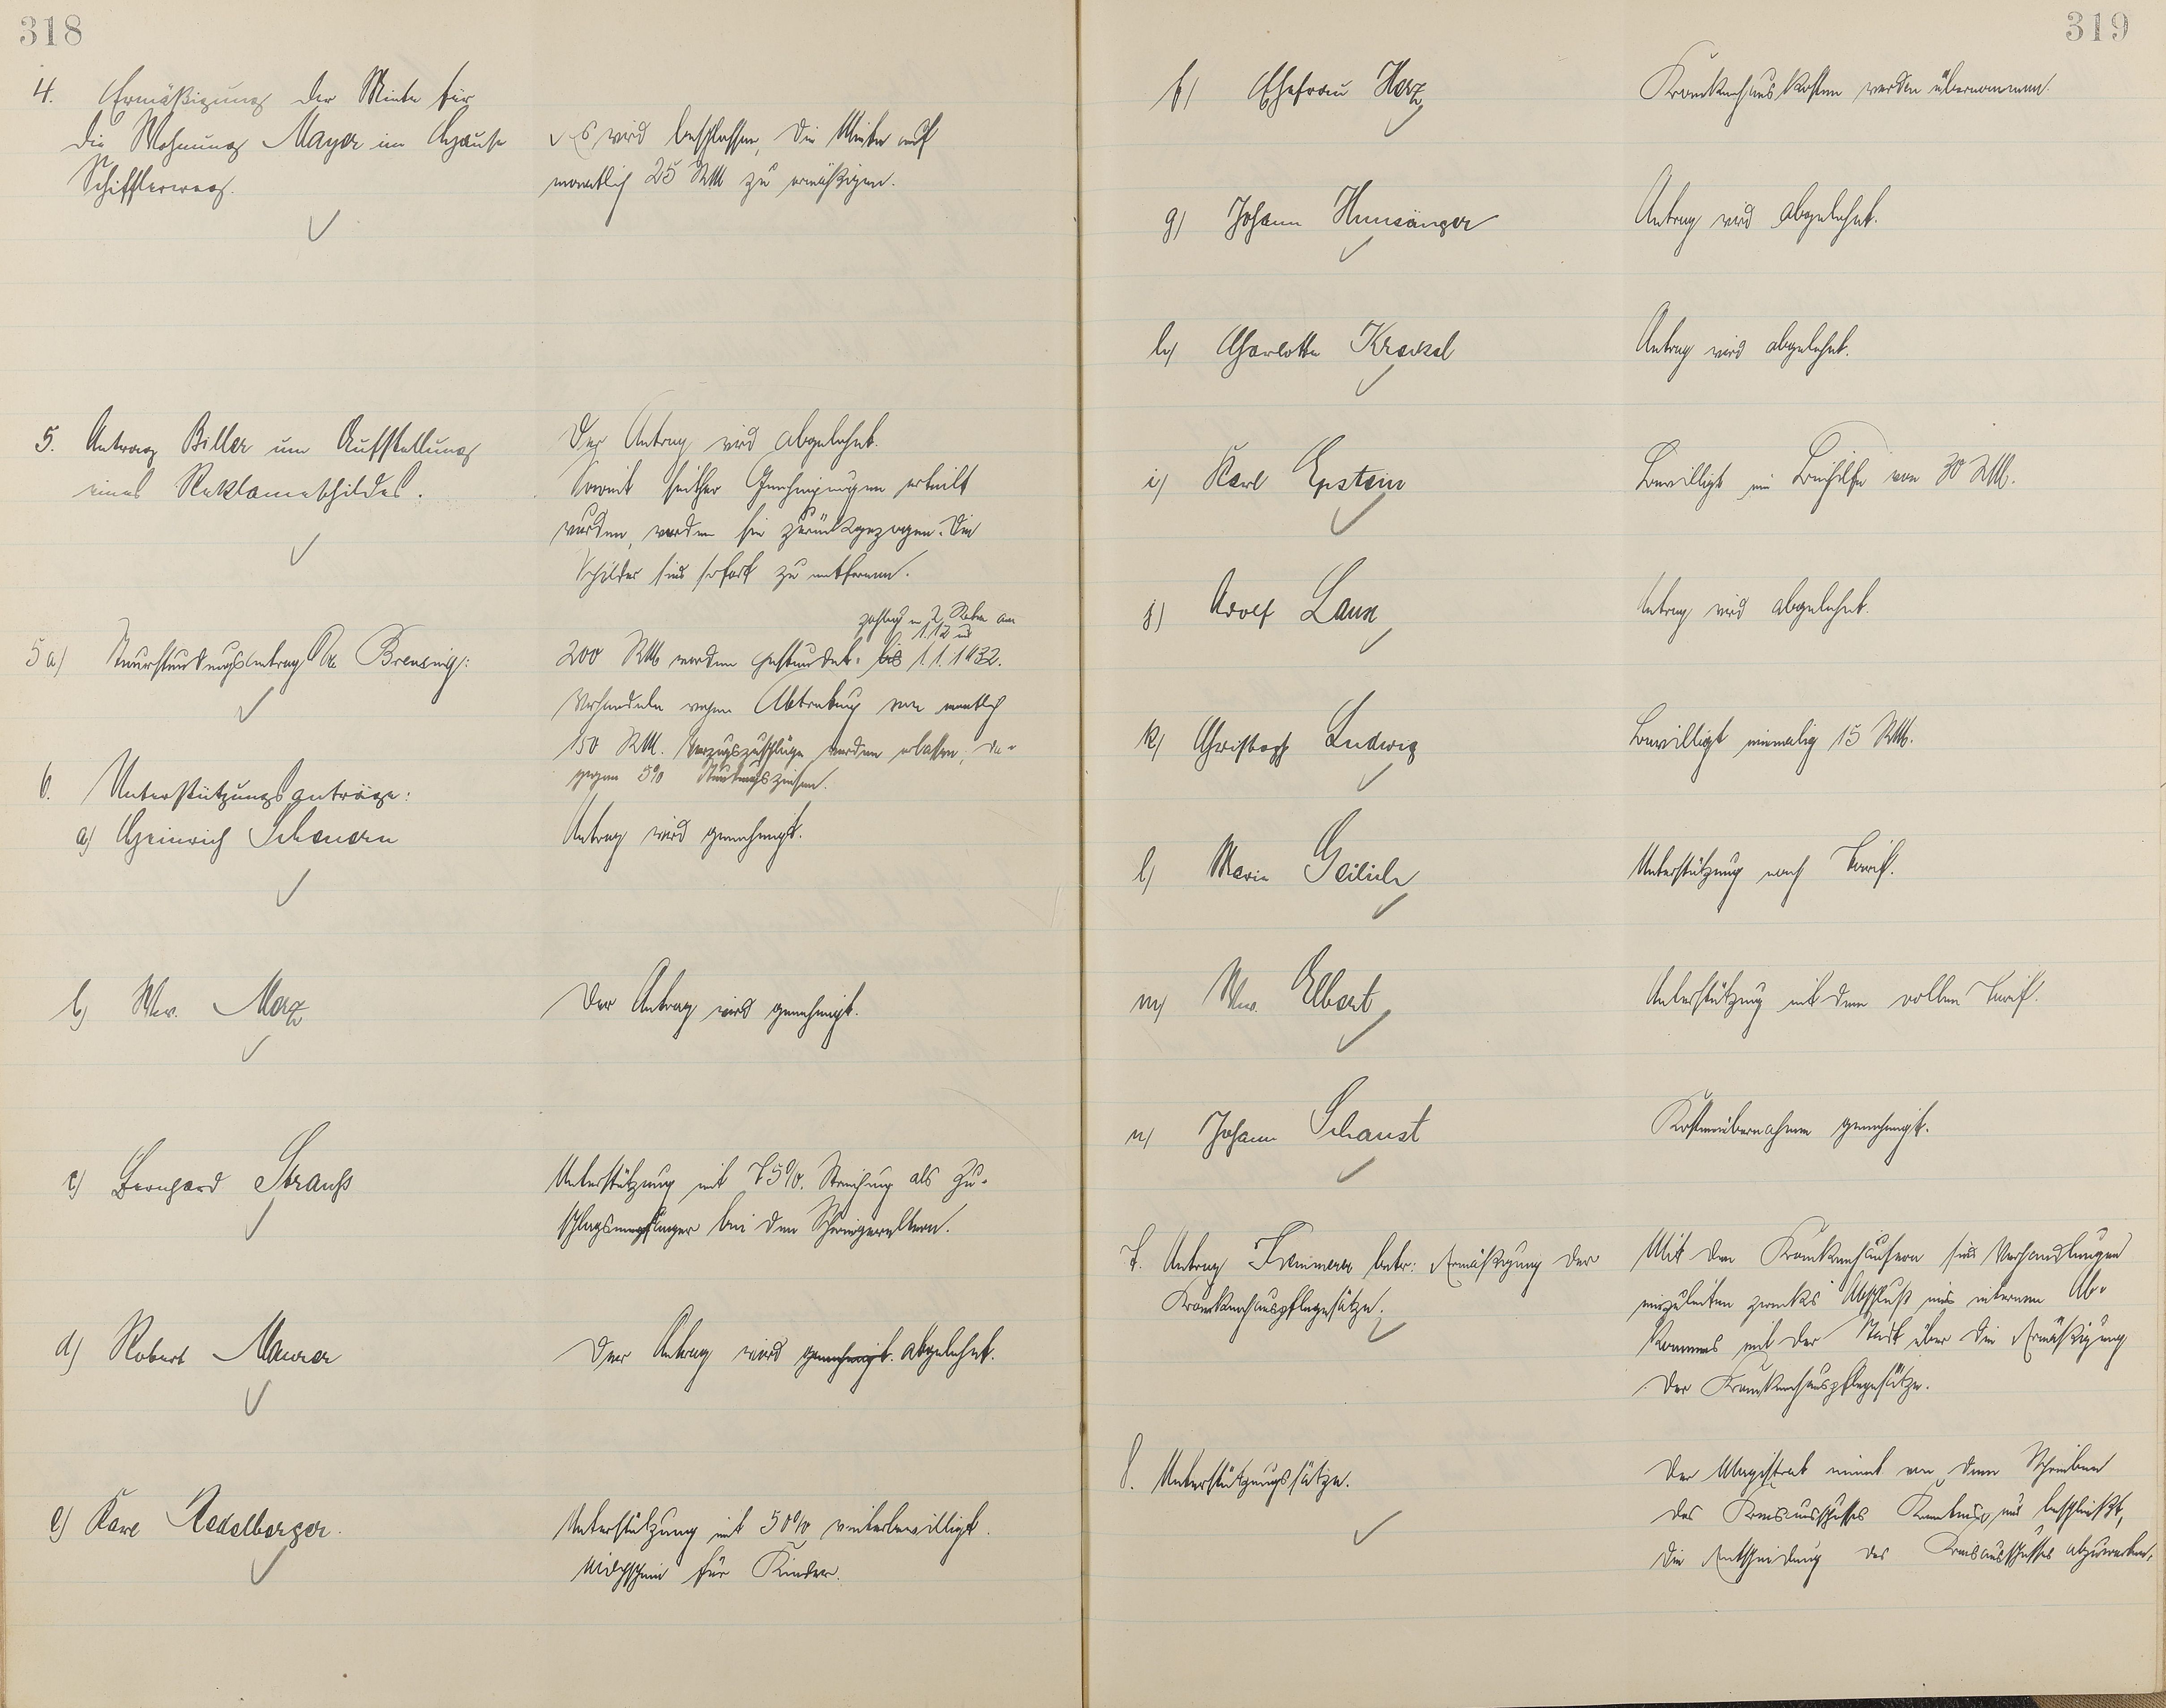 318
4. Ermäßigung der Miete für
die Wohnung Mayer im Hause
Schifflerweg.
Es wird beschlossen, die Miete auf
monatlich 25 RM zu ermäßigen.
5. Antrag Biller um Aufstellung
eines Reklameschildes.
Der Antrag wird abgelehnt.
Soweit seither Genehmigungen erteilt
wurden, werden sie zurückgezogen. Die
Schilder sind sofort zu entfernen.
5a) Steuerstundungsantrag Dr. Brensing:
zahlbar in 2 Raten am
1.12 und
200 RM werden gestundet. bis 1.1.1932.
Verhandeln wegen Abtretung von monatlich
150 RM. Verzugszuschläge werden erlassen, da-
gegen 5% Stundungszinsen.
6. Unterstützungsanträge:
a) Heinrich Schauern
Antrag wird genehmigt.
b) Ww. Marx
Der Antrag wird genehmigt.
c) Bernhard Strauß
Unterstützung mit 75%. Streichung als Zu-
schlagsempfänger bei den Schwiegereltern.
d) Robert Maurer
Der Antrag wird genehmigt. abgelehnt.
e) Karl Redelberger.
Unterstützung mit 50% weiterbewilligt.
Milchschein für Kinder.
319
f) Ehefrau Herz
Krankenhauskosten werden übernommen.
g) Johann Hunsänger
Antrag wird abgelehnt.
h) Charlotte Kreisel
Antrag wird abgelehnt.
i) Karl Epstein
Bewilligt eine Beihilfe von 30 RM.
j) Adolf Laux
Antrag wird abgelehnt.
k) Christoph Ludwig
Bewilligt einmalig 15 RM.
l) Marie Geilich
Unterstützung nach Tarif.
m) Ww. Elbert
Unterstützung mit dem vollen Tarif.
n) Johann Schaust
Kostenübernahme genehmigt.
7. Antrag Kammerer betr: Ermäßigung der
Krankenhauspflegesätze.
Mit den Krankenhäusern sind Verhandlungen
einzuleiten zwecks Abschluß eines internen Ab-
kommens mit der Stadt über die Ermäßigung
der Krankenhauspflegesätze.
8. Unterstützungssätze.
Der Magistrat nimmt von dem Schreiben
des Kreisausschusses Kenntnis und beschließt,
die Entscheidung des Kreisausschusses abzuwarten.